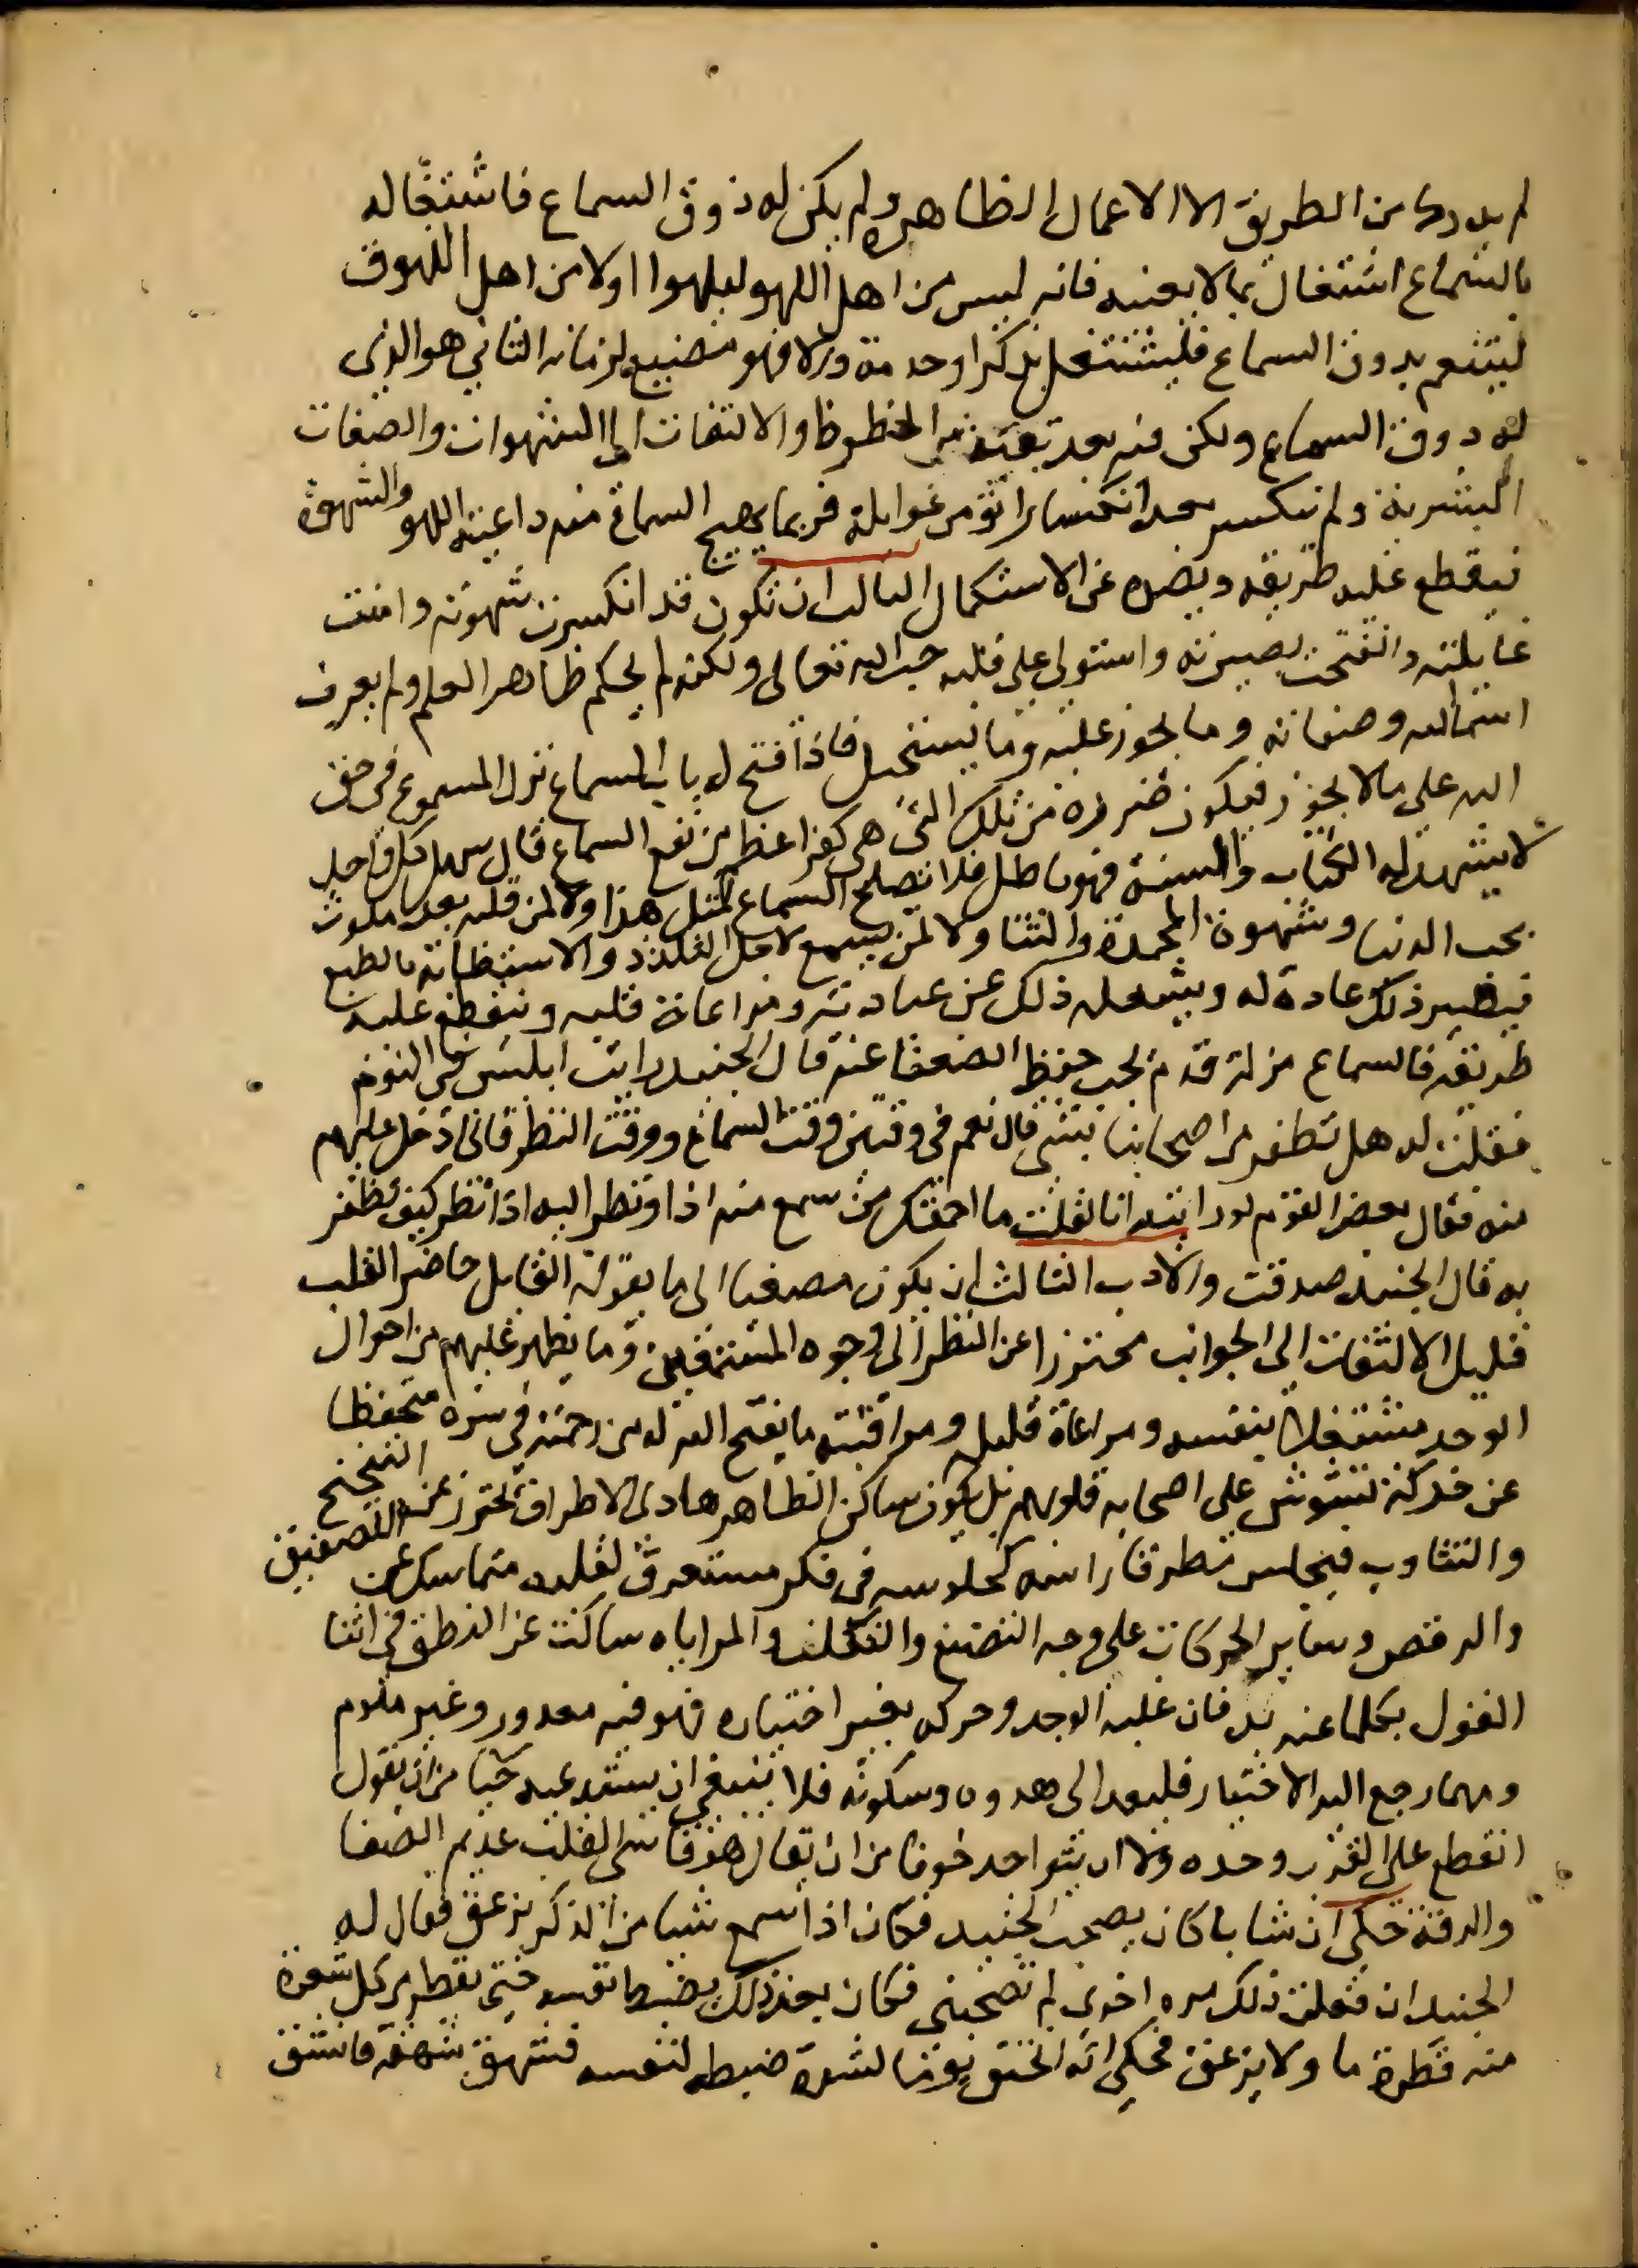 لم يدرك من الطريق الا الاعمال الظاهرة ولم يكن له ذوق السماع فاشتغاله
بالسماع اشتغال بما لا يعنيه فانه ليس من اهل اللهو ليلهوا اولا من اهل الذوق
ليتنعم بدوق السماع فليشتغل بذكر او خدمة والا فهو تضييع لزمانه الثاني هو الذي
له دوق السماع ولكن فيه بعد بقية من الحظوظ والالتفات الى الشهوات والصفات
البشرية ولم ينكسر بعد انكسارا تؤمن غوايله فربما يهيج السماع منه داعية اللهو والشهوة
فيقطع عليه طريقه ويصده عن الاستكمال الثالث ان تكون قد انكسرت شهوته وامنت
غايلته وانفتحت بصيرته واستولى على قلبه حب الله تعالى ولكنه لم يحكم ظاهر العلم ولم يعرف
اسما الله وصفاته وما يجوز عليه وما يستحيل فاذا فتح له باب السماع نزل المسموع في حق
الله على ما لا يجوز فيكون ضرره من تلك التي هي كفر اعظم من نفع السماع قال سهل كل وجد
لا يشهد له الكتاب والسنة فهو باطل فلا يصلح السماع لمثل هذا ولا لمن قلبه بعد ملوث
بحب الدنيا وشهوة المحمدة والثنا ولا لمن يسمع لاجل التلذذ والاستطابة بالطبع
فيصير ذلك عادة له ويشغله ذلك عن عبادته ومراعاة قلبه وينقطع عليه
طريقه فالسماع مزلة قدم يجب حفظ الضعفا عنه قال الجنيد رايت ابليس في النوم
فقلت له هل تظفر من اصحابنا بشي قال نعم في وقتين وقت السماع ووقت النظر فاني ادخل عليهم
منه فقال بعض القوم لو رايته انا لقلت ما احمقك من سمع منه اذا ونظر اليه اذا نظر كيف تظفر
به قال الجنيد صدقت والادب الثالث ان يكون مصغيا الى ما يقوله القايل حاضر القلب
قليل الالتفات الى الجوانب محترزا عن النظر الى وجوه المستمعين وما يظهر عليهم من احوال
الوجد مشتغلا بنفسه ومراعاة قلبه ومراقبته ما يفتح الله له من رحمته في سره متحفظا
عن حركة تشوش على اصحابه قلوبهم بل يكون ساكن الظاهر هادي الاطراف يحترز عن التنحنح
والتثاوب فيجلس مطرقا راسه كجلوسه في فكر مستغرق لقلبه متماسك عن التصفيق
والرقص وساير الحركات على وجه التصنع والتكلف والمراياه ساكت عن النطق في اثنا
القول بكلما عنه بد فان غلبه الوجد وحركه بغير اختياره فهو فيه معدور وغير ملوم
ومهما رجع اليه الاختيار فليعد الى هدوه وسكونه فلا ينبغي ان يستديمه حيا من ان يقول
انقطع على القرب وجده ولا ان يتواجد خوفا من ان يقال هو قاسي القلب عديم الصفا
والرقة حكي ان شابا كان يصحب الجنيد فكان اذا سمع شيا من الذكر يزعق فقال له
الجنيد ان فعلت ذلك مره اخرى لم تصحبني فكان بعد ذلك يضبط نفسه حتى يقطر من كل شعرة
منه قطرة ما ولا يزعق فحكي انه اختنق يوما لشدة ضبطه لنفسه فشهق شهقة فانشق